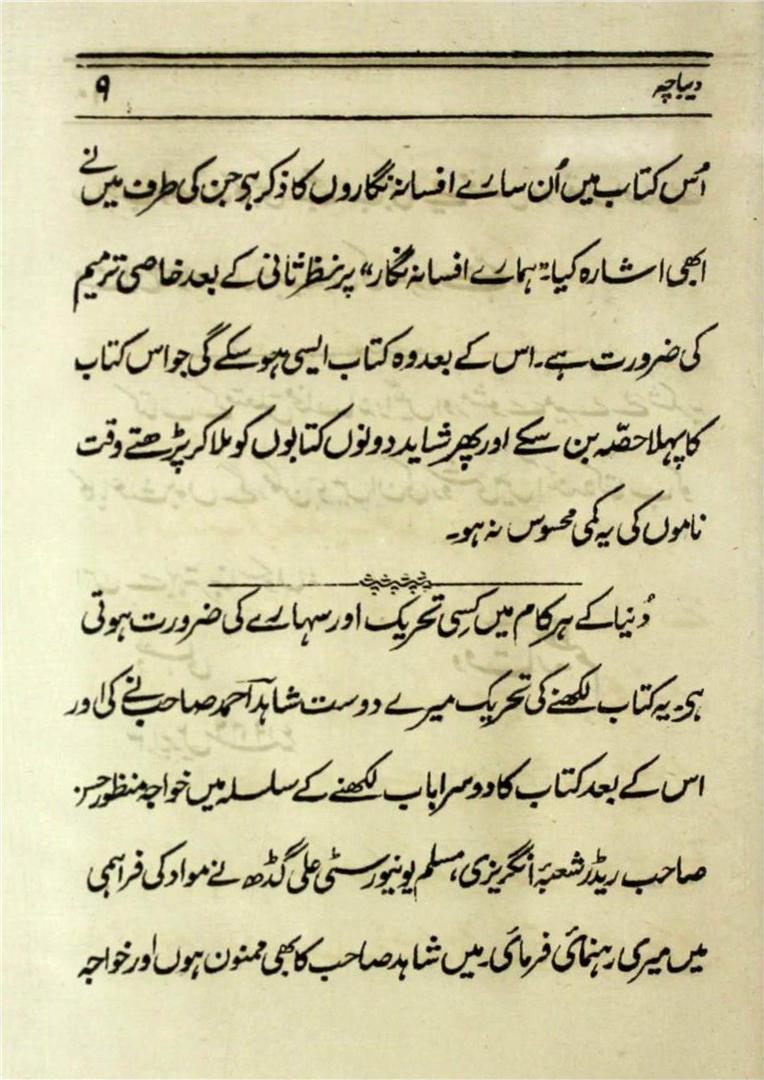 دیباچہ ۹
اُس کتاب میں اُن سارے افسانہ نگاروں کا ذکر ہی جن کی طرف میں نے
ابھی اشارہ کیا۔ ”ہمارے افسانہ نگار“ پر نظر ثانی کے بعد خاصی ترمیم
کی ضرورت ہے۔ اس کے بعد وہ کتاب ایسی ہو سکے گی جو اس کتاب
کا پہلا حصّہ بن سکے اور پھر شاید دونوں کتابوں کو ملا کر پڑھتے وقت
ناموں کی یہ کمی محسوس نہ ہو۔
دُنیا کے ہر کام میں کسِی تحریک اور سہارے کی ضرورت ہوتی
ہی۔ یہ کتاب لکھنے کی تحریک میرے دوست شاہد احمد صاحب نے کی اور
اس کے بعد کتاب کا دوسرا باب لکھنے کے سلسلہ میں خواجہ منظور حسن
صاحب ریڈر شعبۂ انگریزی، مسلم یونیورسٹی علی گڈھ نے مواد کی فراہمی
میں میری رہنمائی فرمائی۔ میں شاہد صاحب کا بھی ممنون ہوں اور خواجہ